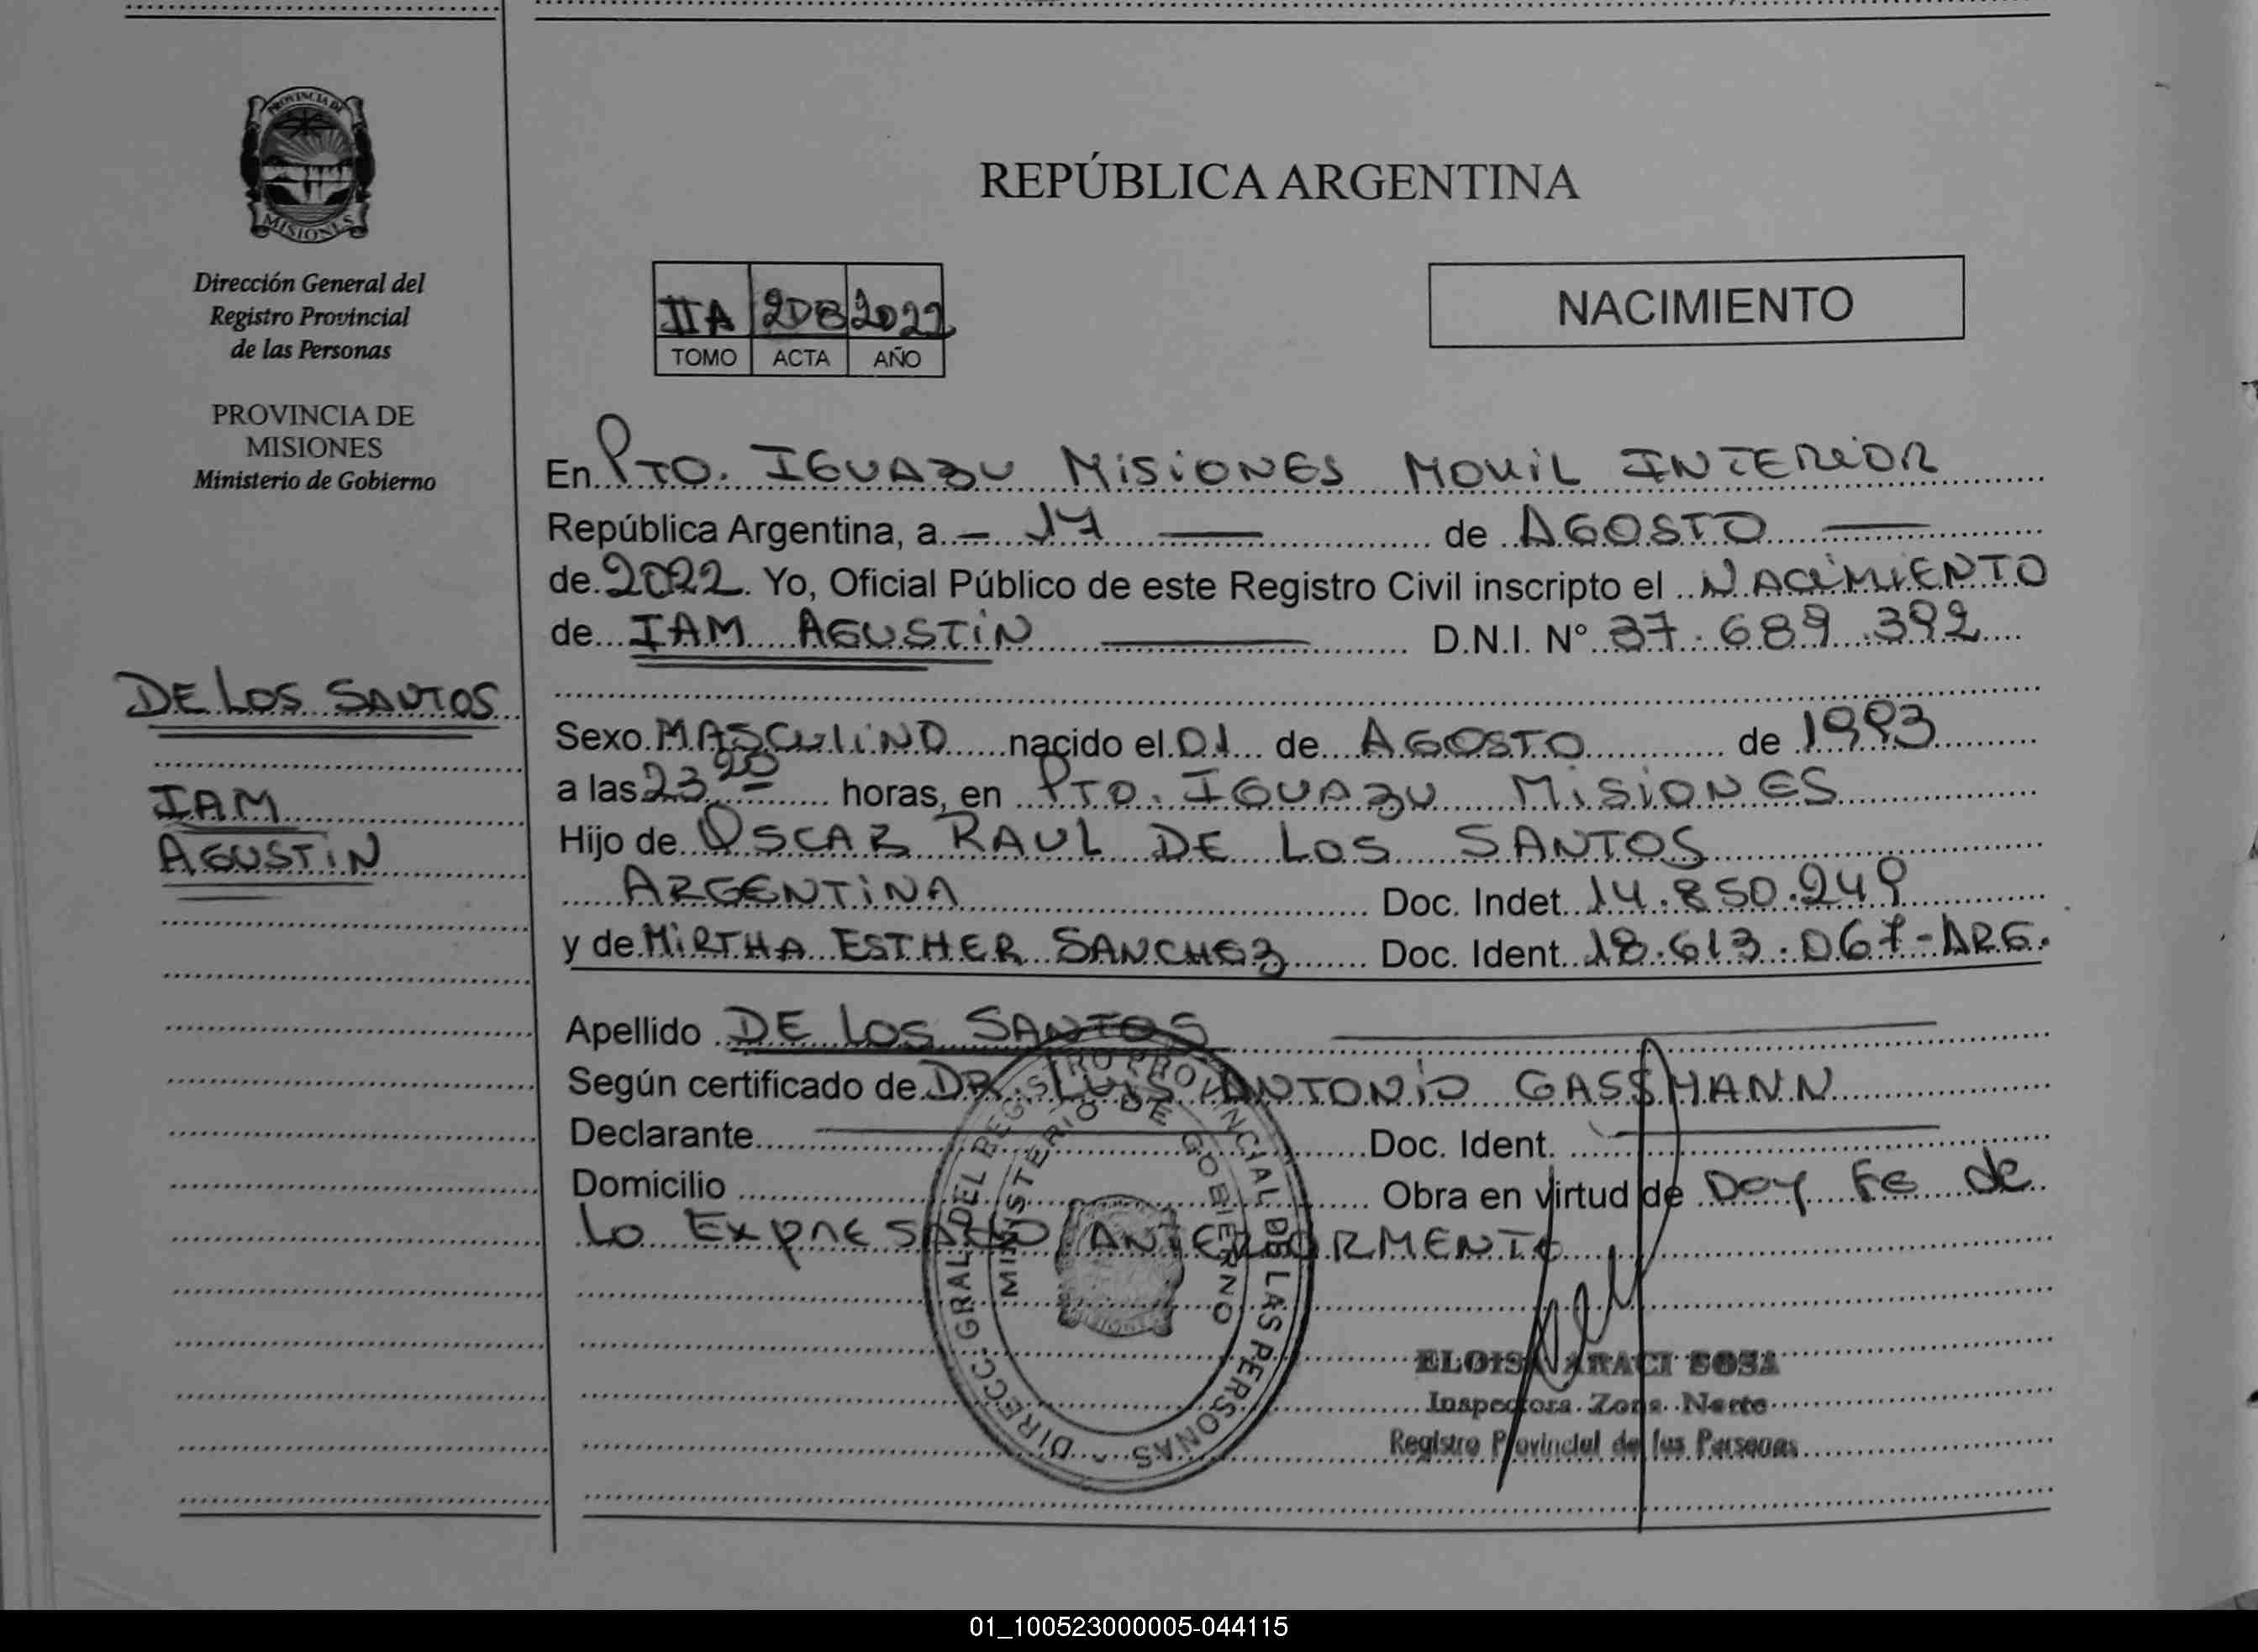 PROVINCIA DE
MISIONES
Dirección General del
Registro Provincial
de las Personas
PROVINCIA DE
MISIONES
Ministerio de Gobierno
DE LOS SANTOS
IAM
AGUSTIN
REPÚBLICA ARGENTINA
IIA 208 2022
TOMO ACTA AÑO
NACIMIENTO
En PTO. IGUAZU MISIONES MOVIL INTERIOR
República Argentina, a 17 de AGOSTO
de 2022. Yo, Oficial Público de este Registro Civil inscripto el NACIMIENTO
de IAM AGUSTIN D.N.I. N° 37.689.392
Sexo MASCULINO nacido el 01 de AGOSTO de 1993
a las 23 20 horas, en PTO. IGUAZU MISIONES
Hijo de OSCAR RAUL DE LOS SANTOS
ARGENTINA Doc. Indet. 14.850.249
y de MIRTHA ESTHER SANCHEZ Doc. Ident. 18.613.067-ARG.
Apellido DE LOS SANTOS
Según certificado de DR. LUIS ANTONIO GASSMANN
Declarante Doc. Ident.
Domicilio Obra en virtud de DOY FE de
Lo EXPRESADO ANTERIORMENTE
DIRECC. GRAL. DEL REGISTRO PROVINCIAL DE LAS PERSONAS
MINISTERIO DE GOBIERNO
ARACI SOSA
Inspectora Zona Norte
Registro Provincial de las Personas
01_100523000005-044115